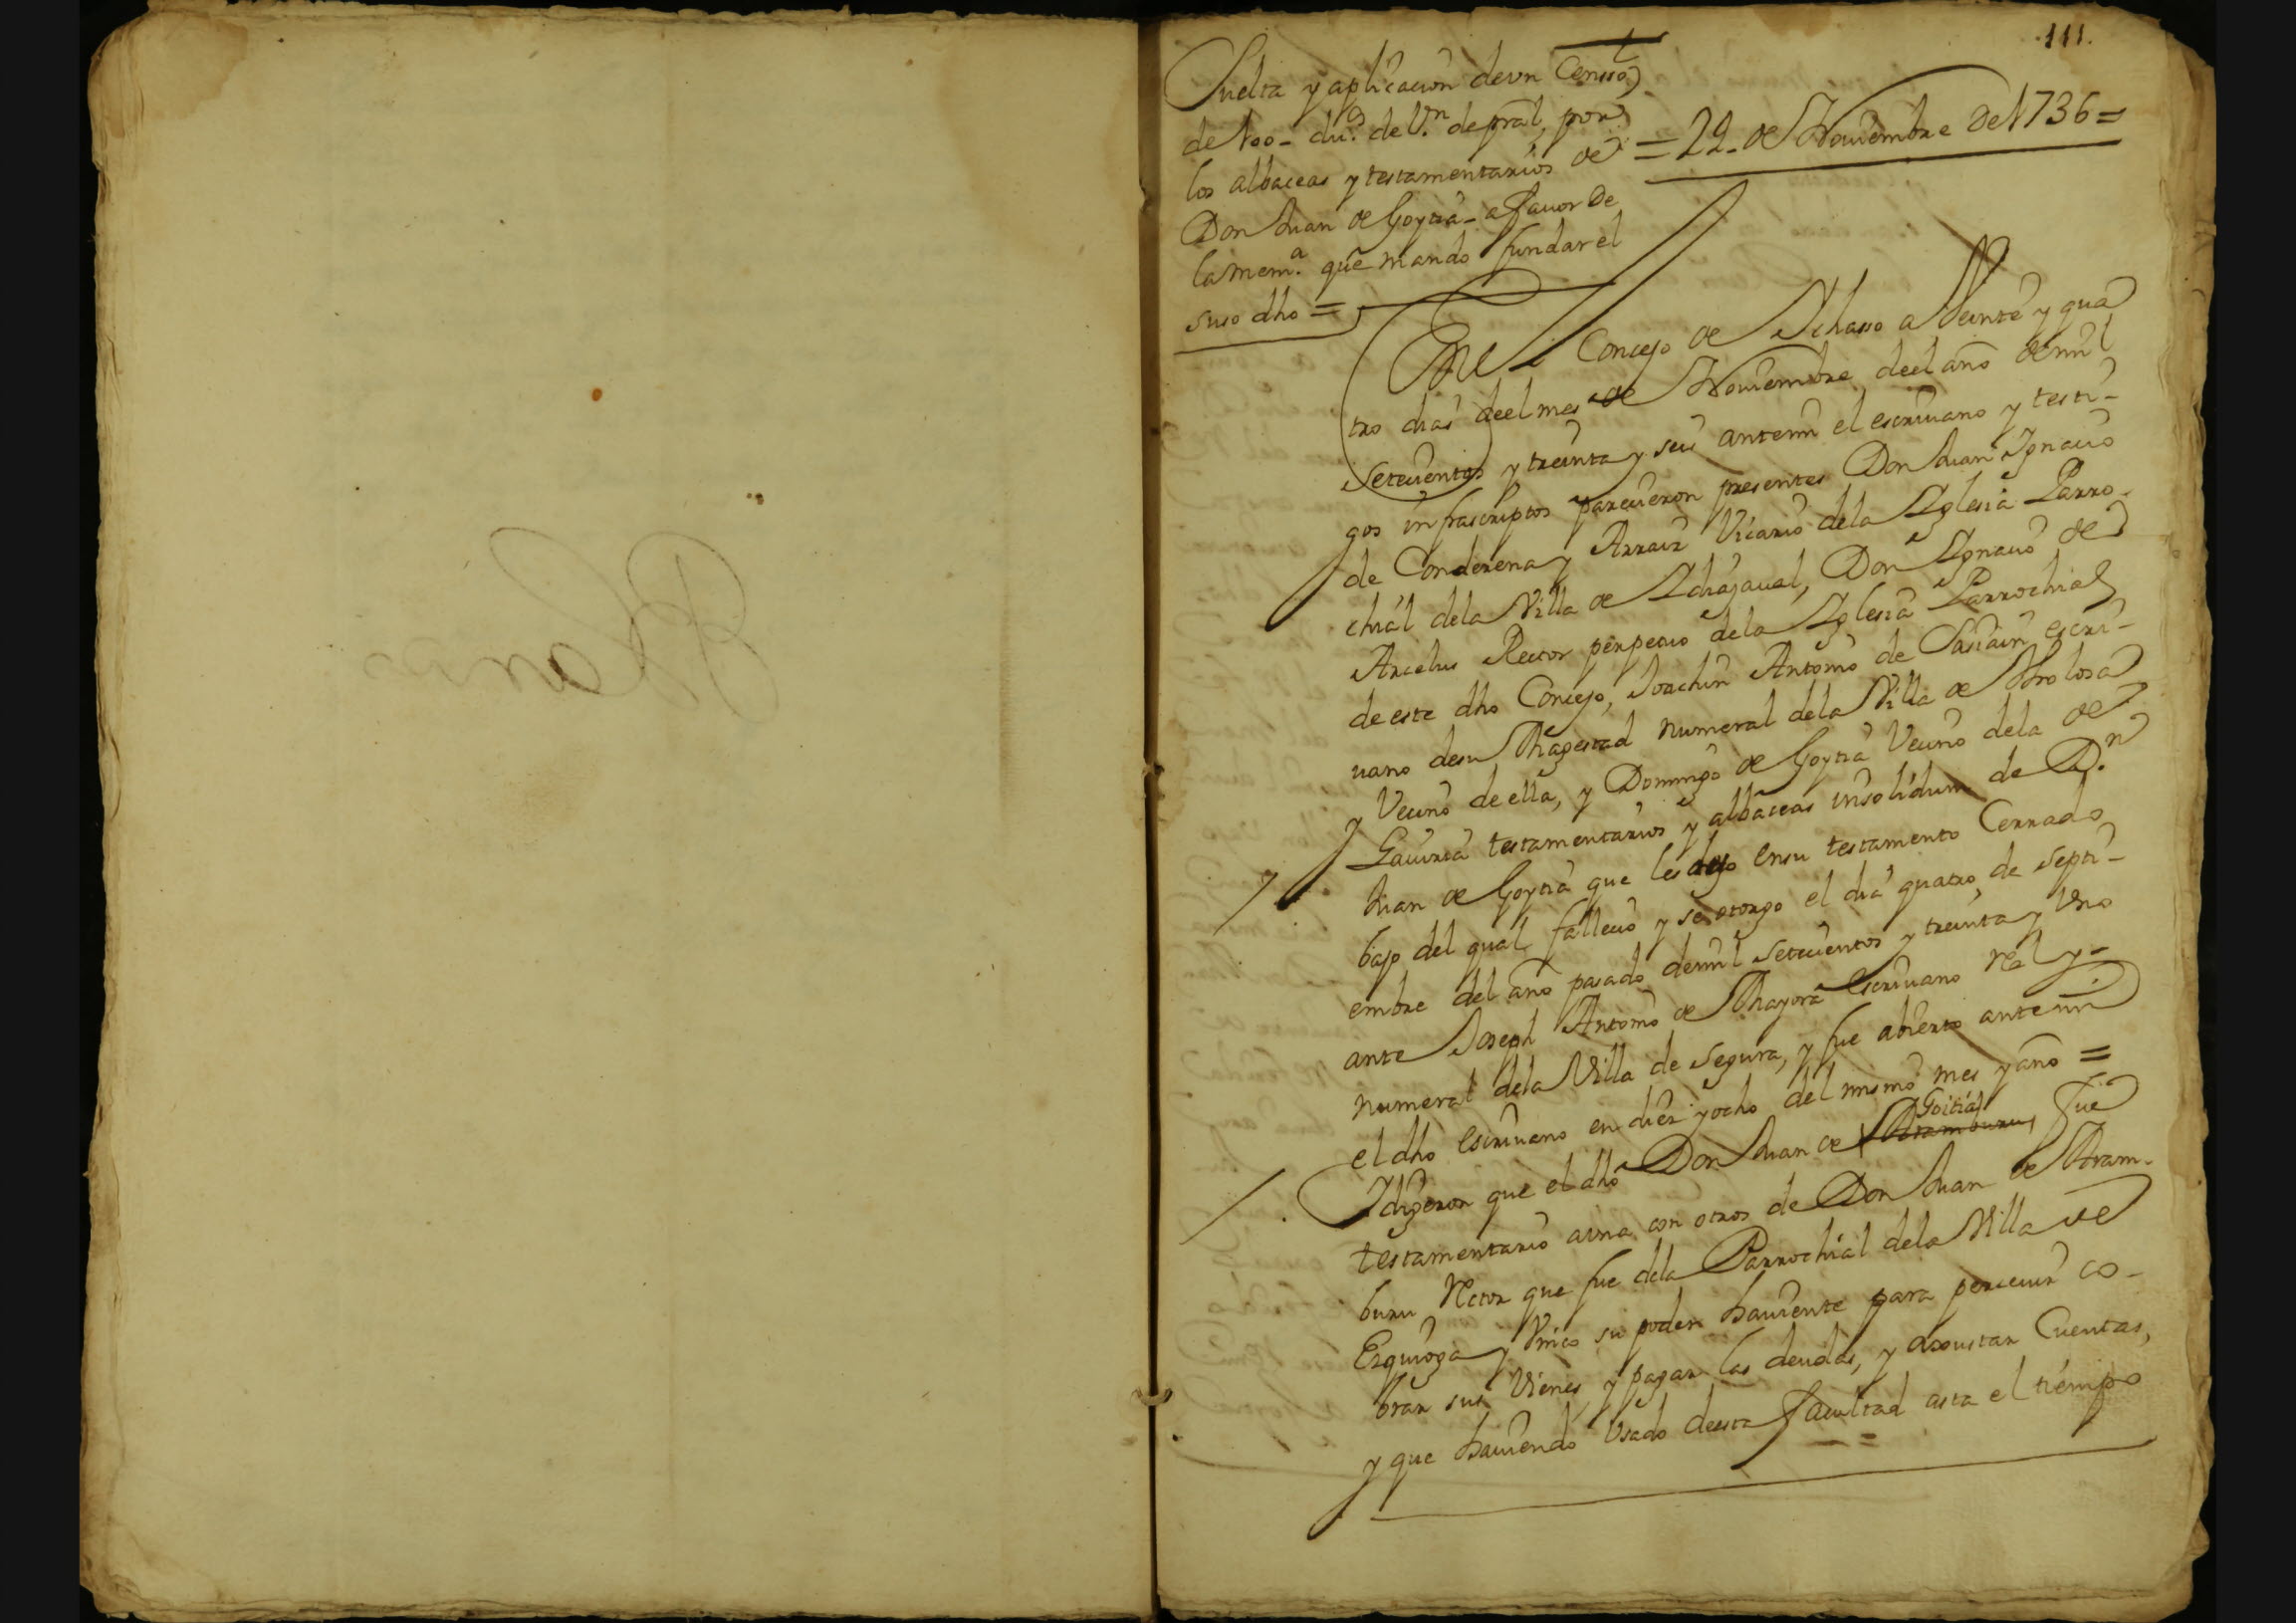 111.
Suelta y aplicacion de vn Censso
de 100- du.s de V.n de pral, por
los albaceas y testamentarios de
Don Juan de Goytia- a favor de
la mem.a que mando fundar el
suso dho =
= 22- de Noviembre De 1736 =
En el Concejo de Ichasso a Veinte y qua
tro dias del mes de Noviembre deel año de mil
Setecientos y treinta y seis ante mi el escrivano y testi-
gos infrascriptos parecieron presentes Don Juan Ignacio
de Conderena y Arraiz Vicario dela Iglesia Parro-
chial dela Villa de Ichasaual, Don Ignacio de
Arcelus Rector perpetuo dela Iglesia Parrochial
de este dho Concejo, Joachin Antonio de Sasiain escri-
uano de su Magestad numeral dela Villa de Tolosa
y Vecino de ella, y Domingo de Goytia Vecino dela de
Gauiria testamentarios y albaceas insolidum de D.n
Juan de Goytia que les dejo en su testamento Cerrado
bajo del qual fallecio y se otorgo el dia quatro de Septi-
embre del año pasado de mil Setecientos y treinta y Vno
ante Joseph Antonio de Mayora Escriuano Rl y-
numeral dela Villa de Segura, y fue abierto ante mi
el dho Escriuano en diez y ocho del mismo mes y año =
Y digeron que el dho Don Juan de Aramburu Goitia fue
testamentario avna con otros de Don Juan de Aram-
buru Retor que fue dela Parrochial dela Villa de
Ezquioga y Vnico su poder haviente para perceuir co-
brar sus Vienes y pagar las deudas, y axustar Cuentas,
y que haviendo Vsado deesta facultad asta el tiempo